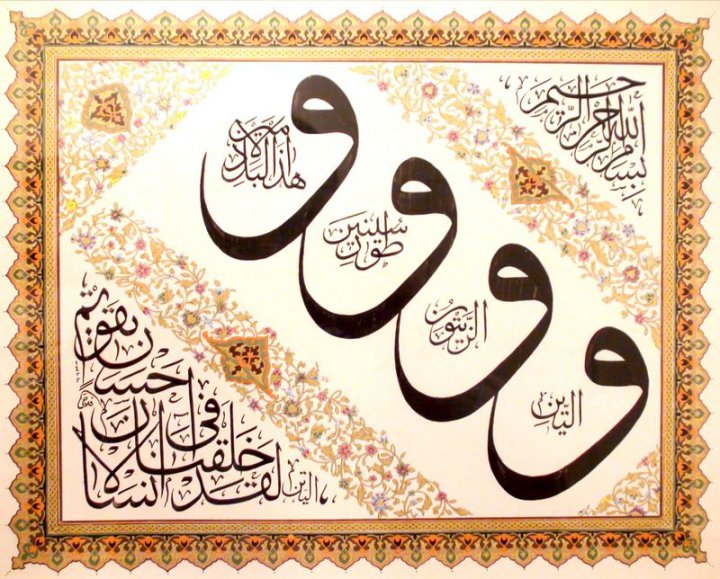 بسم الله الرحمن الرحيم
و التين
و الزيتون
و طور سينين
و هذا البلد الأمين
لقد خلقنا الإنسان في أحسن تقويم
التين